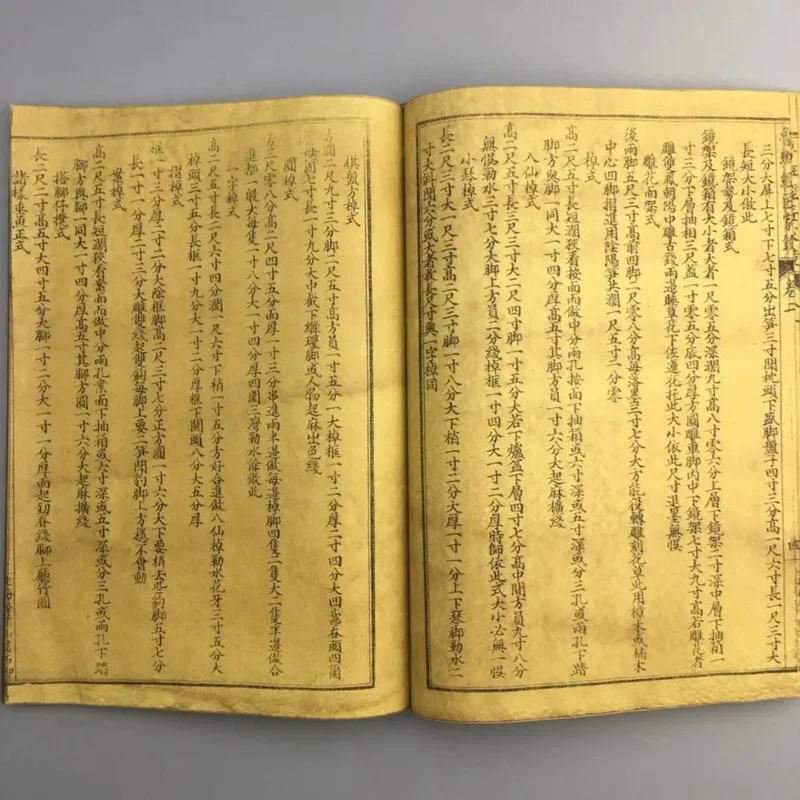 三分大屏上七寸下七寸五分出笋三寸閒枕頭下盛脚盤子四寸三分高一尺六寸長一尺三寸大
長短大小做此
鏡架勢及鏡箱式
鏡架及鏡箱有大小者大者一尺零五分深濶九寸高八寸零六分上層下鏡架二寸深中層下抽箱一
寸三分下層抽相三尺蓋一寸零五分底四分厚方圓雕車脚內中下鏡架七寸大九寸高若雕花者
雕雙鳳朝陽中雕古錢兩邊睡草花下佐蓮花托此大小依此尺寸退墨無悞
雕花面架式
後兩脚五尺三寸高前四脚二尺零八分高每落墨三寸七分大方能役轉雕刻花草此用樟木或楠木
中心四脚摺進用陰陽笋共濶一尺五寸二分零
棹式
高二尺五寸長短濶狹看按面而做中分兩孔按面下抽箱或六寸深或五寸深或分三孔或兩孔下踏
脚方與脚一同大一寸四分厚高五寸其脚方員一寸六分大起麻擴綫
八仙棹式
高二尺五寸長三尺三寸大二尺四寸脚一寸五分大若下爐盆下層四寸七分高中間方員九寸八分
無悞勒水三寸七分大脚上方員二分綫棹框一寸四分大一寸二分厚時師依此式大小必無一悞
小琴棹式
長二尺三寸大一尺三寸高二尺三寸脚一寸八分大下梢一寸二分大厚一寸一分上下琴脚勒水二
寸大斜閗六分或大者放長尺寸與一字棹同
棋盤方棹式
方圓二尺九寸三分脚二尺五寸高方員一寸五分一大棹框一寸二分厚二寸四分大四齒吞頭四箇
一寸九分大中截下縧環脚或人物起麻出色綫
圓棹式
方三尺零八分高二尺四寸五分面厚一寸三分串進兩半邊做每邊棹脚四隻二隻大二隻半邊做合
進都一般大每隻一寸八分大一寸四分厚四圍三灣勒水餘做此
一字棹式
高二尺五寸長二尺六寸四分濶一尺六寸下梢一寸五分方好合進做八仙棹勒水花牙三寸五分大
棹頭三寸五分長框一寸九分大一寸二分厚框下關頭八分大五分厚
摺棹式
框一寸三分厚二寸二分大除框脚高二尺三寸七分正方圓一寸六分大下要梢去些豹脚五寸七分
長一寸一分厚二寸三分大雕雙綫起雙鈎每脚上要二笋閗豹脚上方穩不會動
案棹式
高二尺五寸長短濶狹看案面而做中分兩孔案面下抽箱或六寸深或五寸深或分三孔或兩孔下踏
脚方與脚一同大一寸四分厚高五寸其脚方圓一寸六分大起麻擴綫
搭脚仔櫈式
長二尺二寸高五寸大四寸五分大脚一寸二分大一寸一分厚面起釰脊綫脚上廳竹圓
諸樣垂魚正式